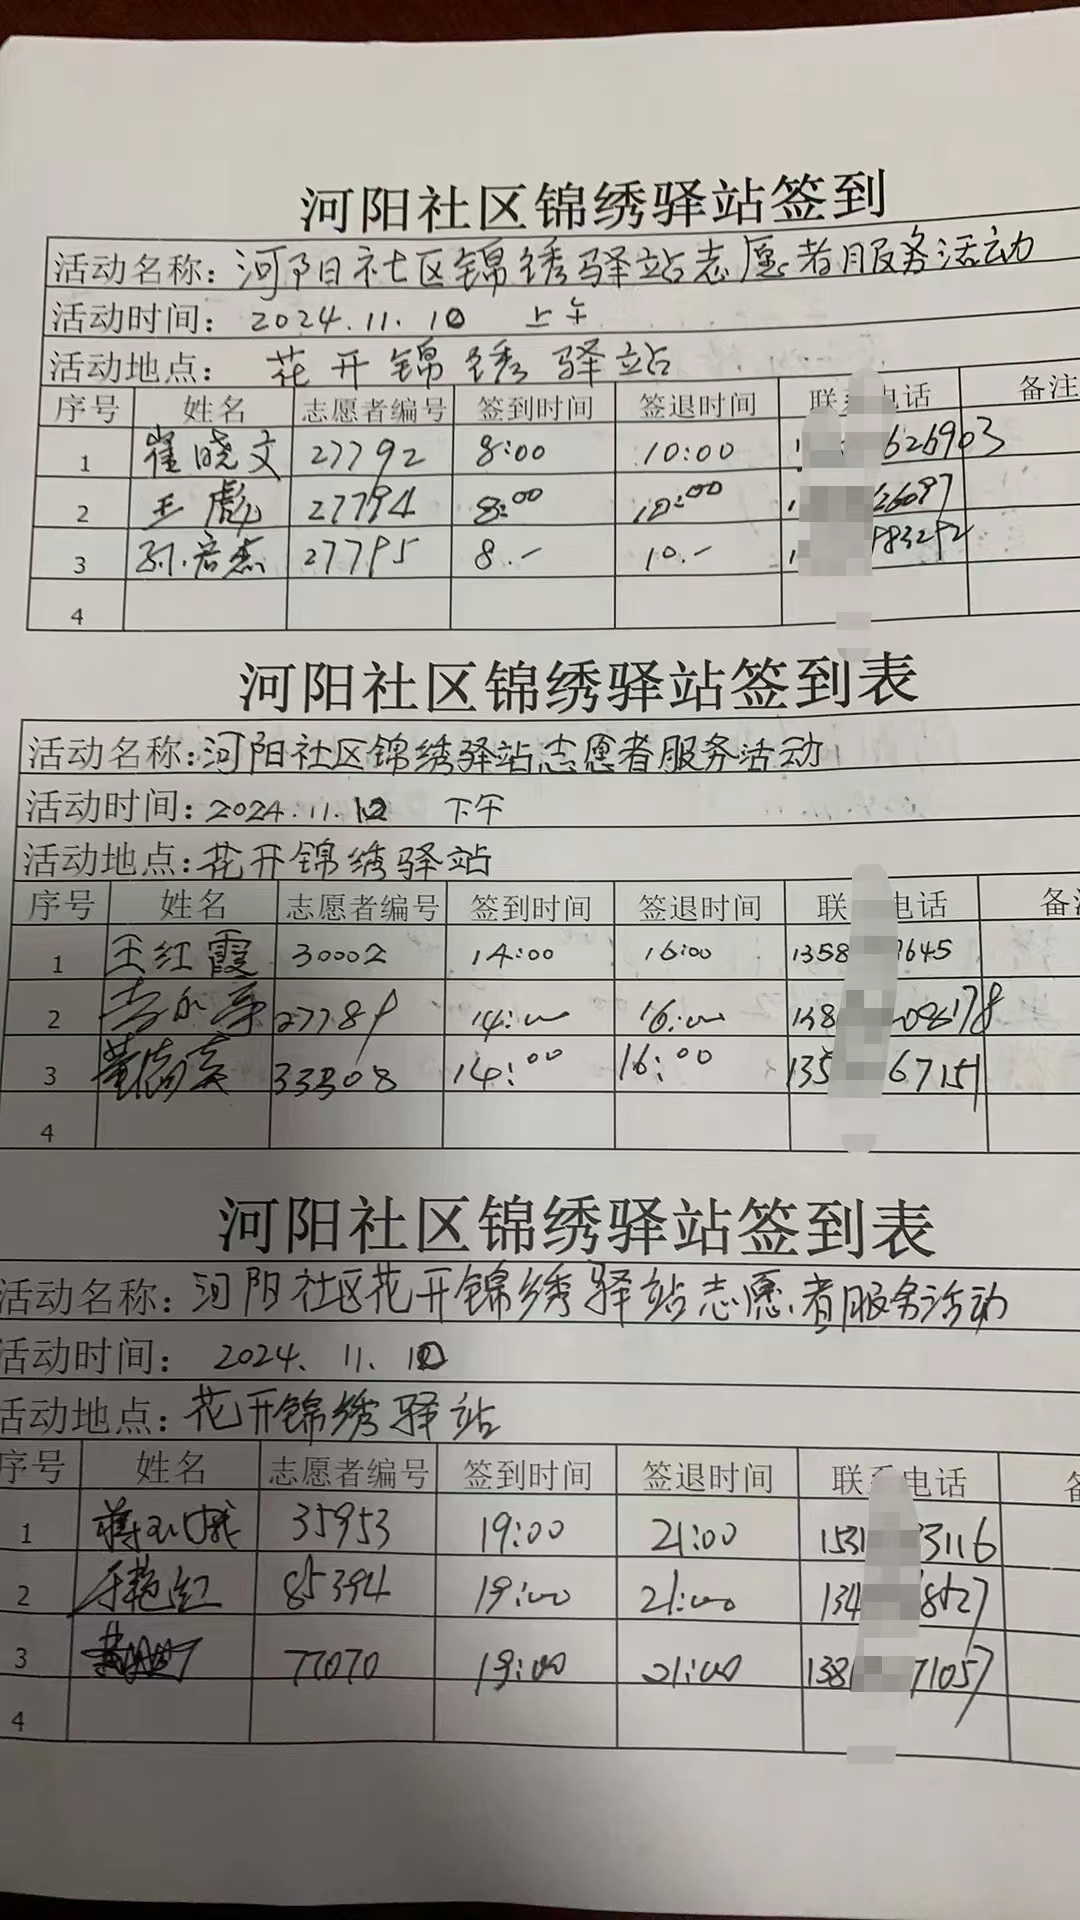 河阳社区锦绣驿站签到
活动名称：河阳社区锦绣驿站志愿者服务活动
活动时间： 2024.11.10 上午
活动地点： 花开锦绣驿站
序号 姓名 志愿者编号 签到时间 签退时间 联系电话 备注
1 崔晓文 27792 8:00 10:00 1 626903
2 王彪 27794 8:00 10:00 1 26097
3 孙 杰 27795 8.— 10.— 1 983292
4
河阳社区锦绣驿站签到表
活动名称:河阳社区锦绣驿站志愿者服务活动
活动时间：2024.11.10 下午
活动地点:花开锦绣驿站
序号 姓名 志愿者编号 签到时间 签退时间 联 电话 备注
1 王红霞 30002 14:00 16:00 1358 9645
2 27789 14:00 16:00 138 08178
3 董 33308 14:00 16:00 135 67151
4
河阳社区锦绣驿站签到表
活动名称：河阳社区花开锦绣驿站志愿者服务活动
活动时间： 2024.11.10
活动地点：花开锦绣驿站
序号 姓名 志愿者编号 签到时间 签退时间 联系电话 备
1 蒋 35953 19:00 21:00 1531 33116
2 于艳红 85394 19:00 21:00 134 8527
3 77070 19:00 21:00 138 71057
4